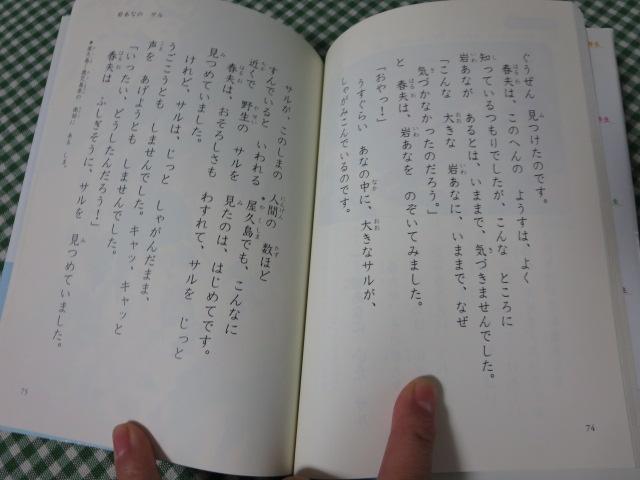 ぐうぜん 見つけたのです。
春夫は、このへんの ようすは、よく
知っているつもりでしたが、こんな ところに
岩あなが あるとは、いままで、気づきませんでした。
「こんな 大きな 岩あなに、いままで、なぜ
気づかなかったのだろう。」
と 春夫は、岩あなを のぞいてみました。
「おやっ！」
うすぐらい あなの中に、大きなサルが、
しゃがみこんでいるのです。
74
岩あなの サル
サルが、このしまの 人間の 数ほど
すんでいると いわれる 屋久島でも、こんなに
近くで 野生の サルを 見たのは、はじめてです。
春夫は、おそろしさも わすれて、サルを じっと
見つめていました。
けれど、サルは、じっと しゃがんだまま、
うごこうとも しませんでした。キャッ、キャッと
声を あげようとも しませんでした。
「いったい、どうしたんだろう！」
春夫は ふしぎそうに、サルを 見つめていました。
ある しま。
75